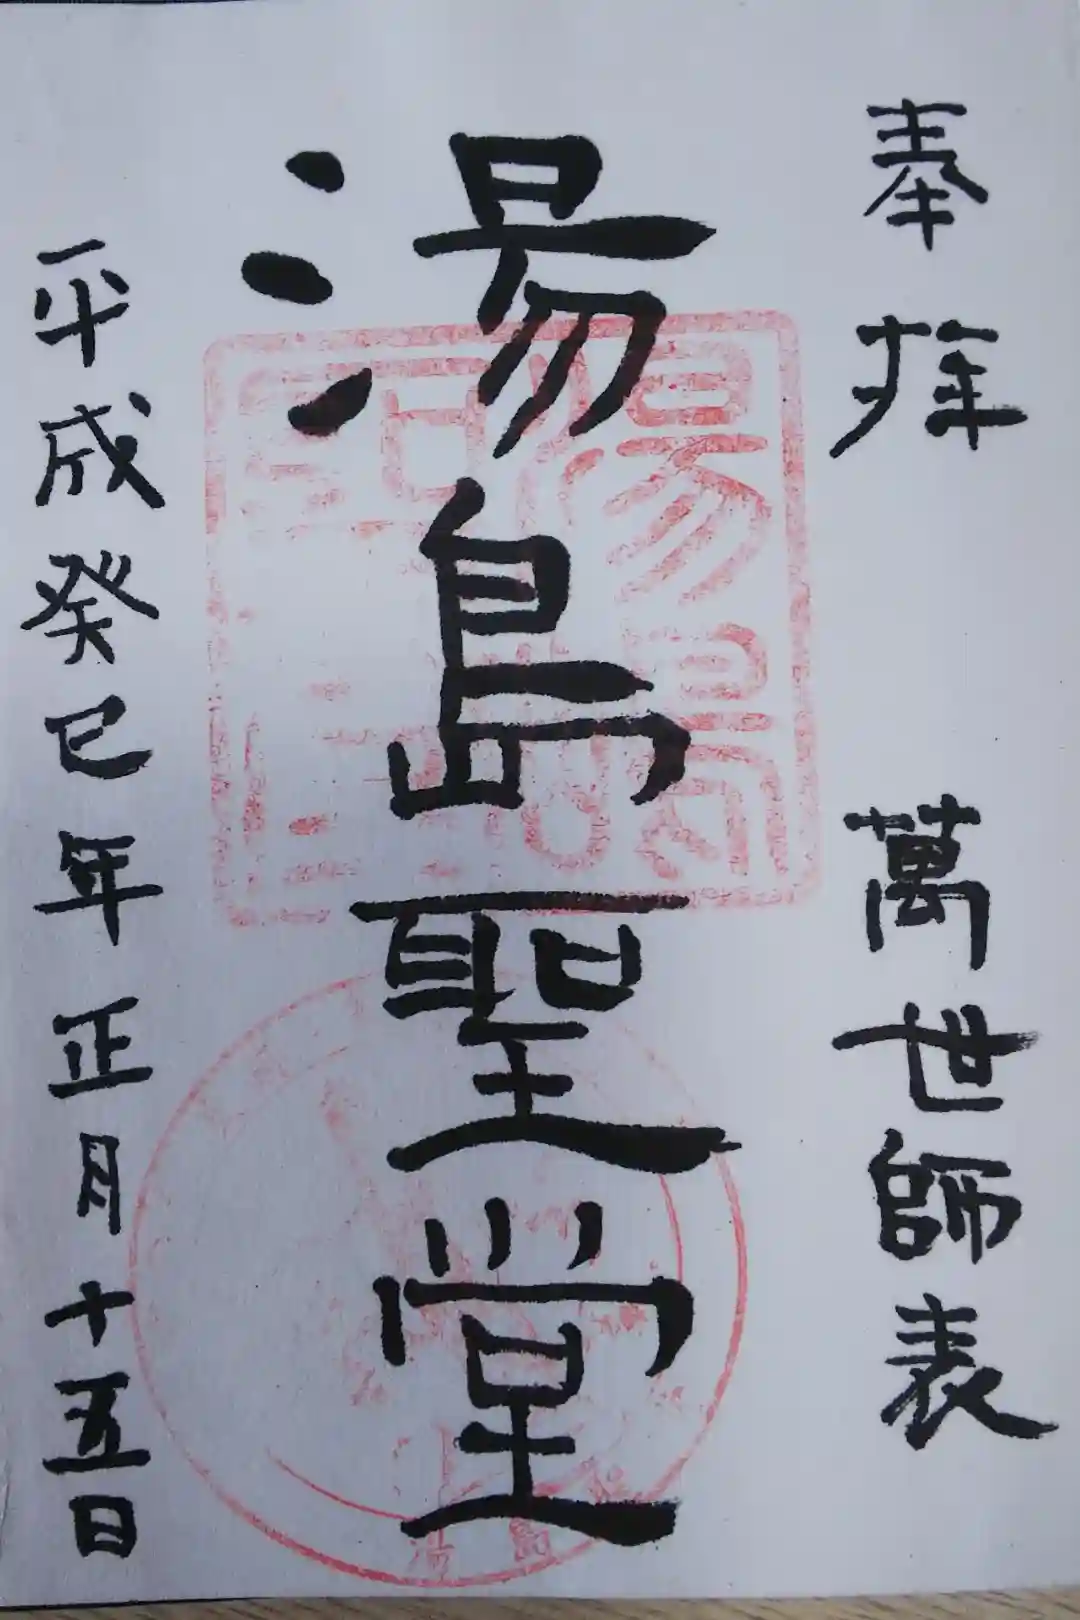 奉拝 萬世師表
湯島聖堂
平成癸巳年正月十五日
湯島